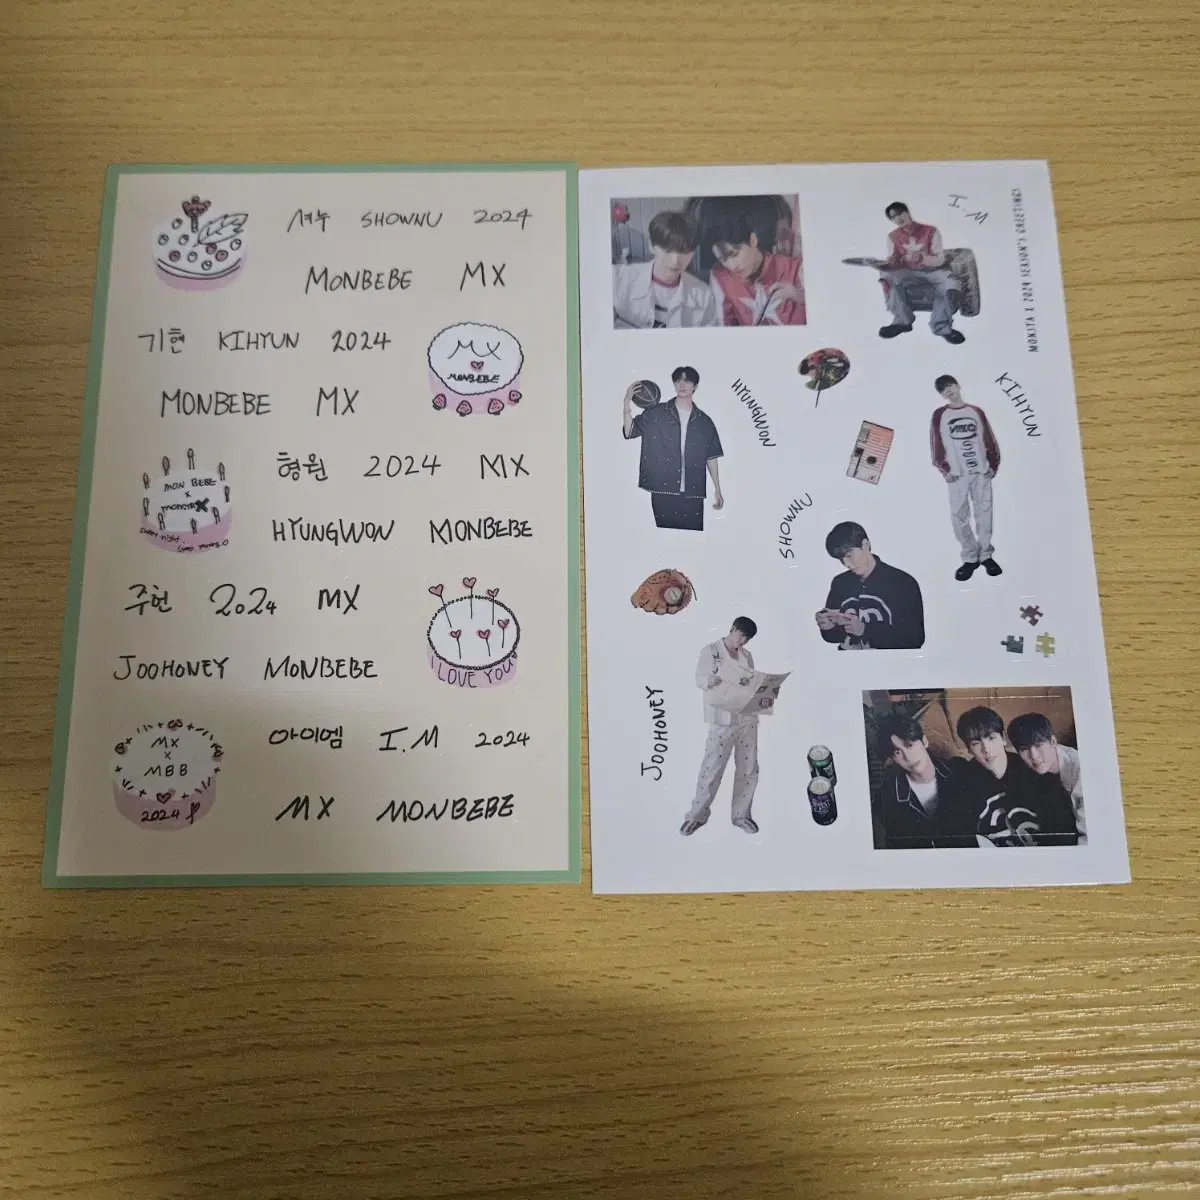 셔누 SHOWNU 2024
MONBEBE MX
기현 KIHYUN 2024
MX
MONBEBE
MONBEBE MX
형원 2024 MX
MON BEBE
X
MONSTA X
HYUNGWON MONBEBE
주헌 2024 MX
JOOHONEY MONBEBE
I LOVE YOU
아이엠 I.M 2024
MX
X
MBB
2024
MX MONBEBE
I.M
MONSTA X 2024 SEASON'S GREETINGS
HYUNGWON
KIHYUN
SHOWNU
JOOHONEY